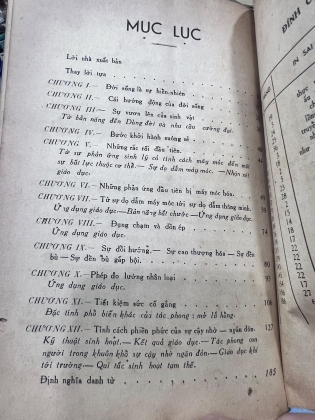 MỤC LỤC
Lời nhà xuất bản
Thay lời tựa
CHƯƠNG I.— Đời sống là sự hiển-nhiên
CHƯƠNG II.— Cái hướng động của đời sống
CHƯƠNG III— Sự vươn lên của sinh vật
Từ bản năng đến Dũng đời và nhu cầu cường đục.
CHƯƠNG IV.— Bước khởi hành muông sẽ
CHƯƠNG V.— Những rắc rối đầu tiên.
Từ sự phản ứng sinh lý có tính cách máy móc đến một
sự bất lực thuộc cơ thể.— Sự dọ dẫm máy móc.— Nhận xét
giáo dục.
CHƯƠNG VI.— Những phản ứng đầu tiên bị máy móc hóa.
CHƯƠNG VII.— Từ sự dọ dẫm máy móc tới sự dọ dẫm thông minh.
Ứng dụng giáo dục.— Bản năng bắt chước — Ứng dụng giáo dục.
CHƯƠNG VIII.— Đụng chạm và dồn ép 74
Ứng dụng giáo dục.
CHƯƠNG IX.— Sự đổi hướng.— Sự cao thượng hóa — Sự đền
bù — Sự đền bù gấp bội. 80
CHƯƠNG X.— Phép đo lường nhân loại 93
Ứng dụng giáo dục.
CHƯƠNG XI.— Tiết kiệm sức cố gắng 106
Đặc tính phổ biến khác của tác phong: mở lỗ hổng.
CHƯƠNG XII.— Tính cách phiền phức của sự cậy nhờ — ngăn đón. 127
Kỹ thuật sinh hoạt.— Kết quả giáo dục.— Tác phong con
người trong khuôn khổ sự cậy nhờ ngăn đón.— Giáo dục khi
tới trường.— Qui tắc sinh hoạt tạm thế.
Định nghĩa danh từ 185
ĐÍNH C
IN SAI